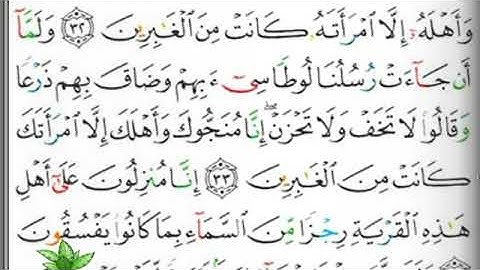 وَأَهْلَهُۥٓ إِلَّا ٱمْرَأَتَهُۥ كَانَتْ مِنَ ٱلْغَٰبِرِينَ ٣٢ وَلَمَّآ
أَن جَآءَتْ رُسُلُنَا لُوطًا سِىٓءَ بِهِمْ وَضَاقَ بِهِمْ ذَرْعًا
وَقَالُوا۟ لَا تَخَفْ وَلَا تَحْزَنْ ۖ إِنَّا مُنَجُّوكَ وَأَهْلَكَ إِلَّا ٱمْرَأَتَكَ
كَانَتْ مِنَ ٱلْغَٰبِرِينَ ٣٣ إِنَّا مُنزِلُونَ عَلَىٰٓ أَهْلِ
هَٰذِهِ ٱلْقَرْيَةِ رِجْزًا مِّنَ ٱلسَّمَآءِ بِمَا كَانُوا۟ يَفْسُقُونَ